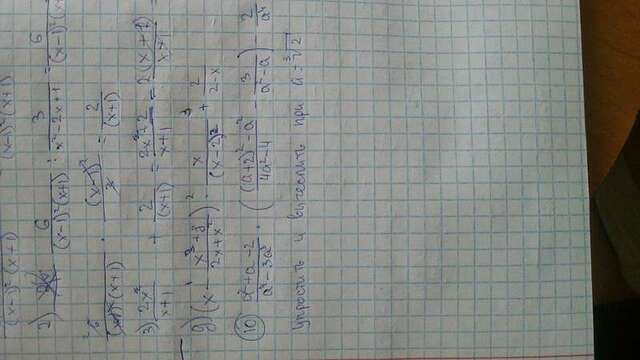 (x-1)² (x+1) (x-1)² (x+1)
2) 6/((x-1)²(x+1)) : 3/(x²-2x+1) = 6/((x-1)²(x+1))
6/((x-1)²(x+1)) · (x-1)²/3 = 2/(x+1)
3) 2x²/(x+1) + 2/(x+1) = (2x²+2)/(x+1) = 2(x+1)/(x+1)
g) (x - (x³+8)/(2x+x²)) · x/(x-2)² + 2/(2-x)
10 (a²+a-2)/(a⁴-3a³) · (((a+2)²-a²)/(4a²-4) - 3/(a²-a)) - 2/a⁴
упростить и вычеслить при a = ³√2